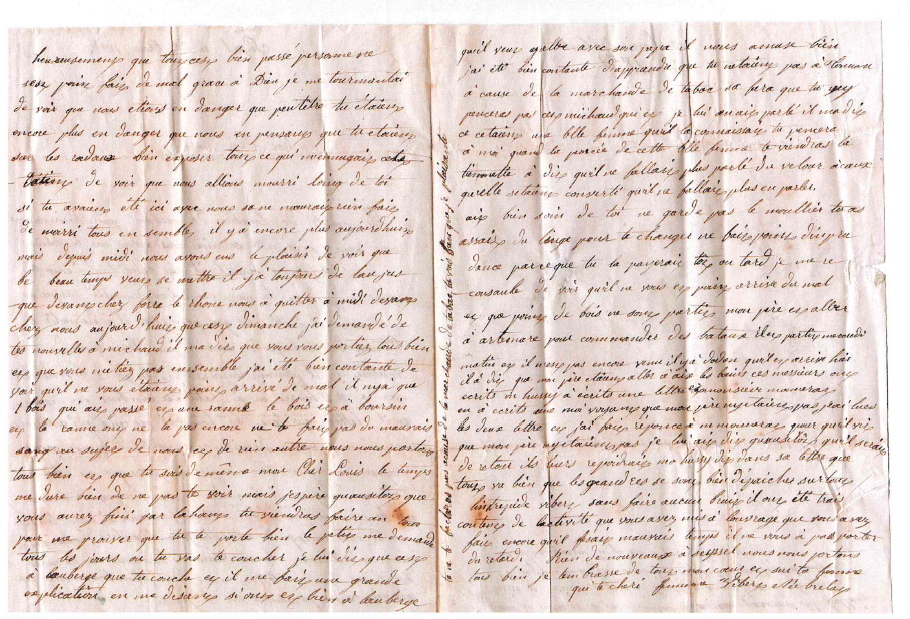 heurausement que tout ces bien passé personne ne
sere poin fais de mal grace a Dieu je me tourmentai
de voir que nous etions en danger que peutetre tu etains
encore plus en danger que nous en pensant que tu etains
sur les radaux bien exposer tout ce qui
de voir que nous allions mourri loins de toi
si tu avains été ici avec nous sa ne maurais rien fais
de mourri tous en semble, il y a encore plus aujourdhuis
mais depuis midi nous avons eus le plaisir de voir que
le beau temps veus se mettre il y a toujours de lau jus
que devans chez le rhone nous a quitter à midi devans
chez nous aujourd huis que ces dimanche j'ai demandé de
tes nouvelles à michaud il ma dis que vous vous portiez tous bien
et que vous metiez pas ensemble j'ai été bien contante de
voir qu'il ne vous étains poins arrivé de mal il n'y a que
1 bois qui aus passé et une ramme le bois es à
es la ramme on ne la pas encore ne te fais pas de mauvais
sang au sujet de nous ces de rien autre nous nous portons
tous bien es que tu sois de même mon Cher Louis le temps
me dure bien de ne pas te voir mais jespere quausitos que
vous aurez fini par la haus tu viendras faire un
pour me prouver que tu te porte bien le petis me demande
tous les jours ou tu vas te coucher je lui dis que ces
à lauberge que tu couche es il me fais une grande
explication en me disans si ons es bien à lauberge
sa ne te fachera pas au sujet de la marchande de tabac
qu'il veus aller avec son papa il nous amuse bien
j'ai été bien contante d'apprendre que tu netains pas à
a cause de la marchande de tabac sa fera que tu ny
penceras pas ces michaud qui es je lui avais parlé il ma dis
ce cetains une belle femme qu'il la connaissais tu pencera
à moi quand la parcie de cette belle femme te viendras le
a dis qu'il ne fallais plus parlé du velour a caux
quelle setains converti qu'il ne fallais plus en parler.
aix bien soin de toi ne garde pas le mouillier tu as
assais du linge pour te changer ne fais poins dinpru
dance parceque tu la payerais tos ou tard je me re
consaule de voir qu'il ne vous es poins arrivé du mal
es que poins de bois ne sons partis mon père es aller
à pour commander des bataux il es partis mercredi
matin es il n'es pas encore venu il y a qu'il es arrivé hier
il a dis que mon père etains aller à aix les bains ces messieurs ons
ecrits m hussy a ecrits une lettre es monsieur
en a ecrits une moi voyans que mon père ny étains pas j'ai lues
les deux lettre es j'ai fais reponce a m pour qu'il vis
que mon père ny étains pas je lui ais dis quausitos qu'il serais
de retour ils leurs repondrais m hussy dis dans sa lettre que
tous va bien que les grandres se sons bien dépaichés surtous
lintrepide vibers sans faire aucun bruis il ons été trais
contens de lactivité que vous avez mis à louvrage que vous avez
fais encore qu'il fesais mauvais temps il ne vous a pas porter
du retard. Rien de nouveaux a seyssel nous nous portons
tous bien je tembrasse de tous mon caeur es suis ta femme
qui te cheri femme Vibers née